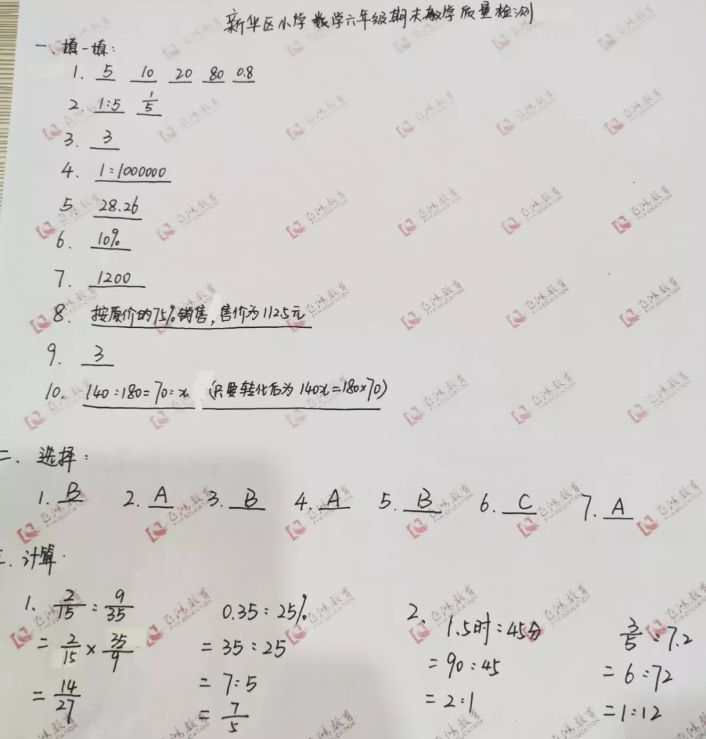 新华区小学数学六年级期末教学质量检测
一、填一填:
1. 5 10 20 80 0.8
2. 1:5 1/5
3. 3
4. 1:1000000
5. 28.26
6. 10%
7. 1200
8. 按原价的75%销售,售价为1125元
9. 3
10. 140:180=70:x (只要转化后为140x=180×70)
二、选择:
1. B 2. A 3. B 4. A 5. B 6. C 7. A
三、计算
1. 2/15 : 9/35 0.35:25% 2. 1.5时:45分 3/5:7.2
= 2/15 × 35/9 = 35:25 = 90:45 = 6:72
= 14/27 = 7:5 = 2:1 = 1:12
= 7/5